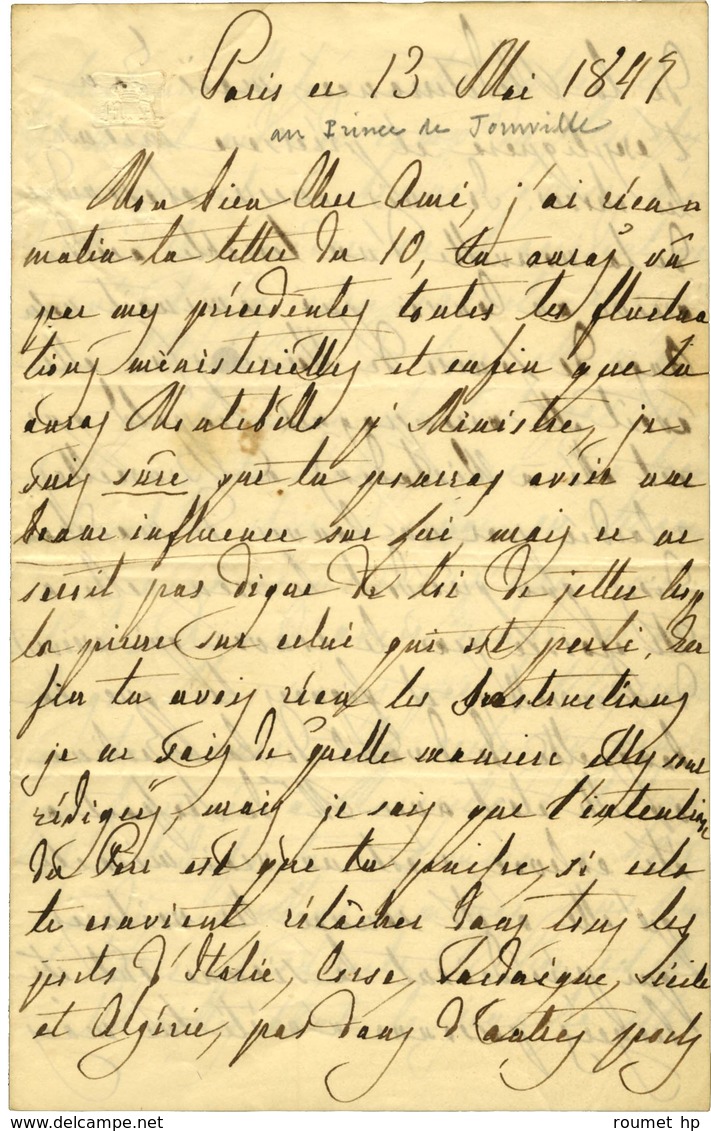 Paris ce 13 Mai 1847
au Prince de Joinville
Mon bien Cher Ami, j'ai réçu
matin ta lettre du 10, tu auras vû
par mes précédentes toutes les fluctua
tions ministerielles et enfin que tu
auras Montebello pr Ministre, je
suis sûre que tu pourras avoir une
bonne influence sur lui, mais ce ne
serait pas digne de toi de jetter
la pierre sur celui qui est parti. En
fin tu avois réçu les Instructions
je ne sais de quelle maniere elles sont
rédigées, mais je sais que l'intention
du Pere est que tu puisse, si cela
te convient, rélâcher dans tous les
ports d'Italie, Corse, Sardaigne, Sicile
et Algérie, pas dans d'autres ports
roumet hp